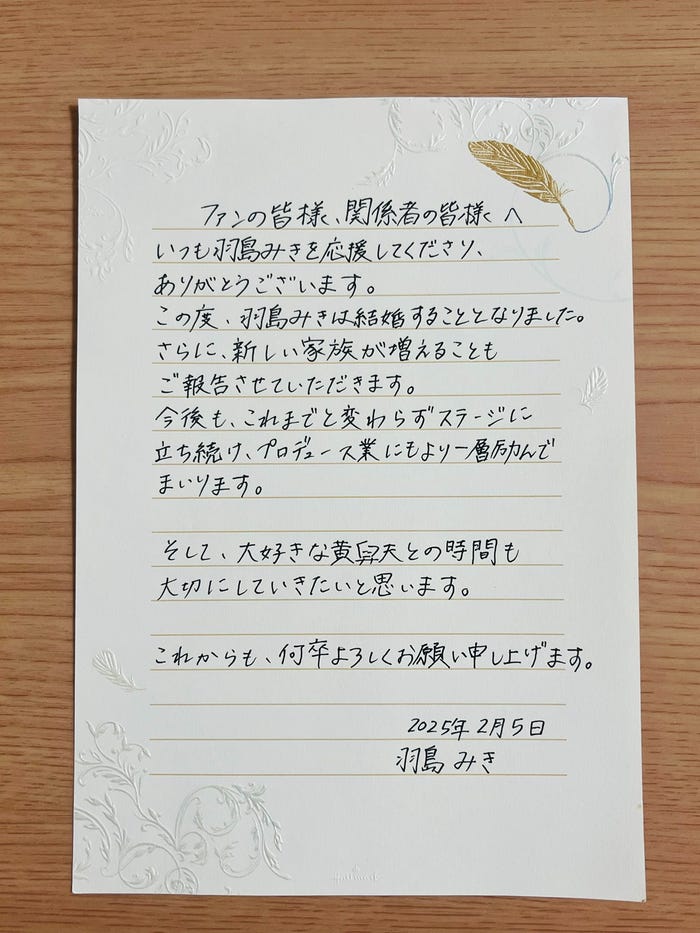 ファンの皆様、関係者の皆様へ
いつも羽島みきを応援してくださり、
ありがとうございます。
この度、羽島みきは結婚することとなりました。
さらに、新しい家族が増えることも
ご報告させていただきます。
今後も、これまでと変わらずステージに
立ち続け、プロデュース業にもより一層励んで
まいります。
そして、大好きな黄昇天との時間も
大切にしていきたいと思います。
これからも、何卒よろしくお願い申し上げます。
2025年2月5日
羽島みき
Hallmark